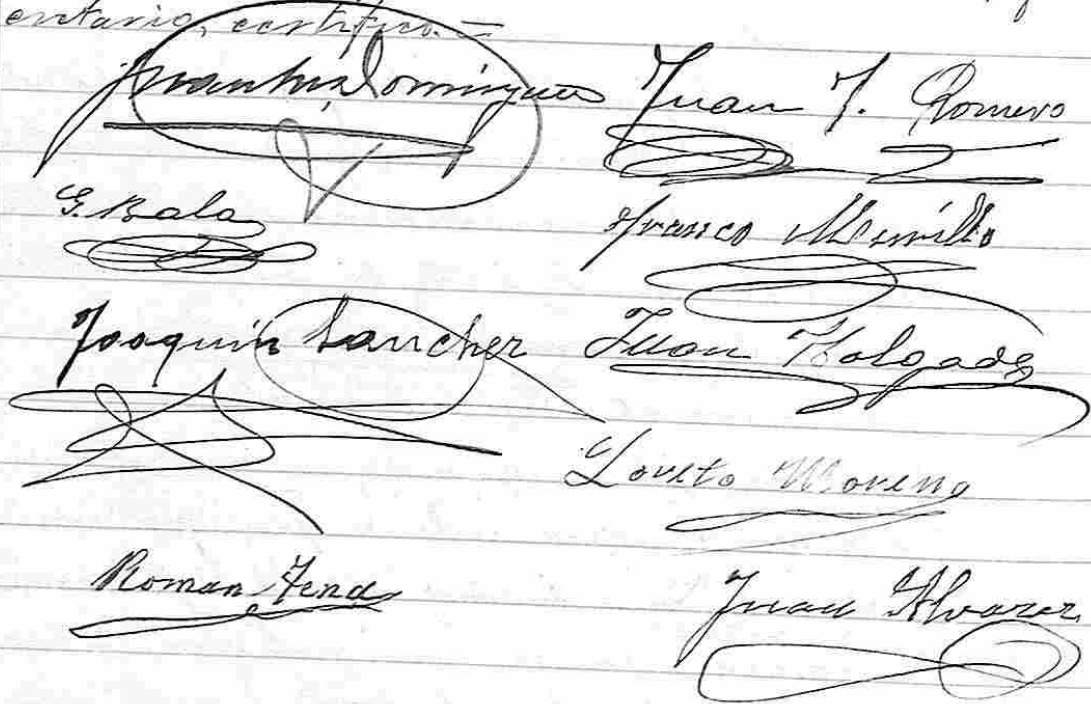 certifico. =
Juan Luis Dominguez Juan J. Romero
G. Bala Franco Murillo
Joaquin Sanchez Juan Holgado
Loreto Moreno
Roman Juan Alvarez